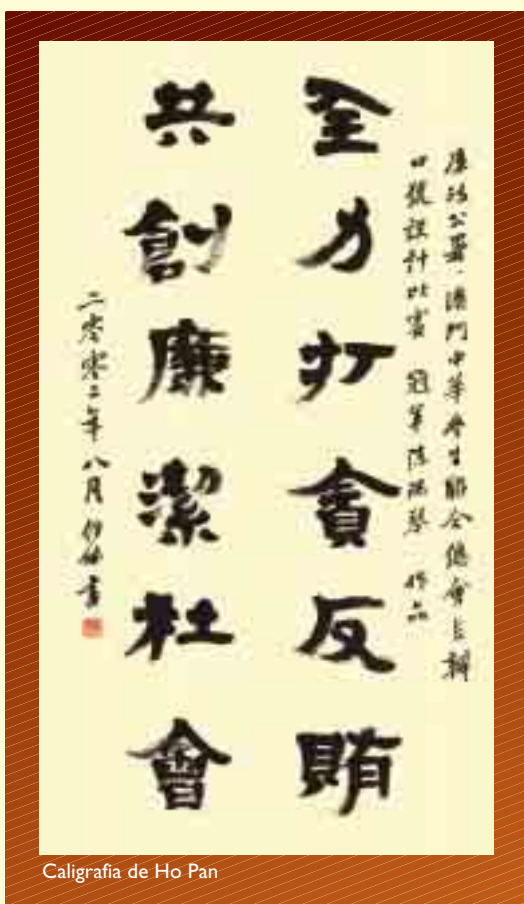 廉政公署、澳門中華學生聯合總會主辦
口號設計比賽 冠軍 作品
全力打貪反賄
共創廉潔社會
二零零二年八月 書
Caligrafia de Ho Pan